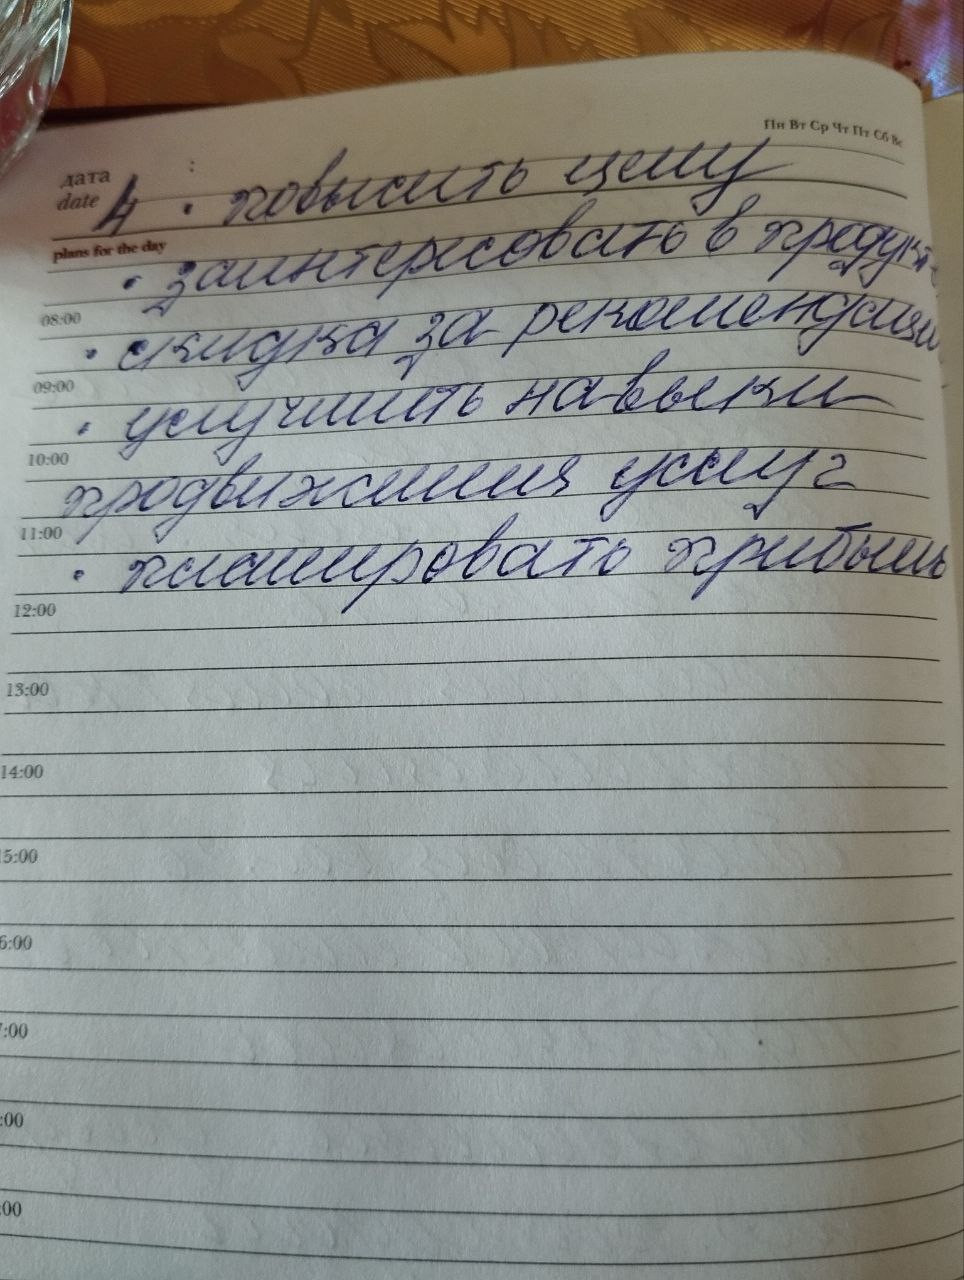 Пн Вт Ср Чт Пт Сб Вс
дата :
date 4 • повысить цену
plans for the day
• заинтересовать в продукте
08:00
• скидка за рекомендации
09:00
• улучшить навыки
10:00
продвижения услуг
11:00
• планировать прибыль
12:00
13:00
14:00
15:00
6:00
7:00
:00
:00